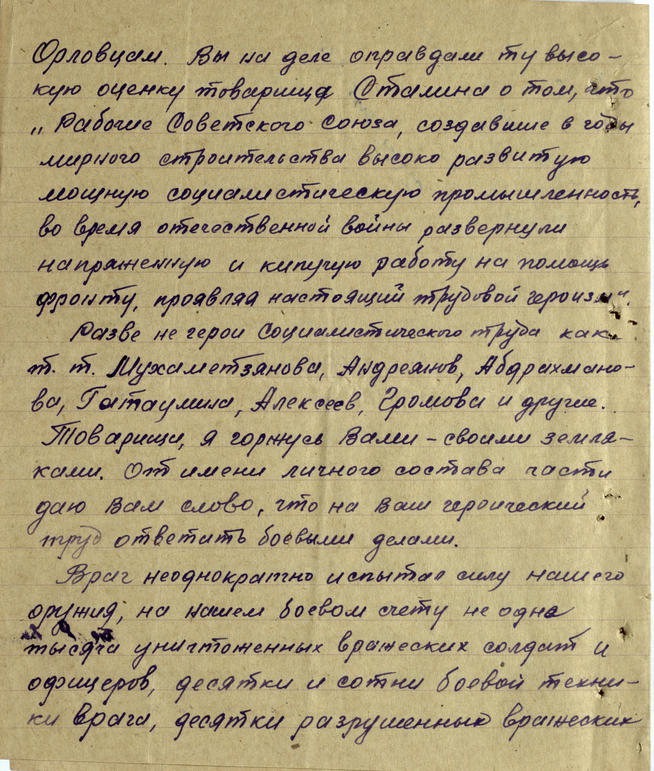 Орловцам. Вы на деле оправдали ту высо-
кую оценку товарища Сталина о том, что
„Рабочие Советского Союза, создавшие в годы
мирного строительства высоко развитую
мощную социалистическую промышленность,
во время отечественной войны развернули
напряженную и кипучую работу на помощь
фронту, проявляя настоящий трудовой героизм".
Разве не герои Социалистического труда как
т. т. Мухаметзянова, Андреянов, Абдрахмано-
ва, Гатаулина, Алексеев, Громова и другие.
Товарищи, я горжусь Вами – своими земля-
ками. От имени личного состава части
даю Вам слово, что на Ваш героический
труд ответить боевыми делами.
Враг неоднократно испытал силу нашего
оружия, на нашем боевом счету не одна
тысяча уничтоженных вражеских солдат и
офицеров, десятки и сотни боевой техни-
ки врага, десятки разрушенных вражеских